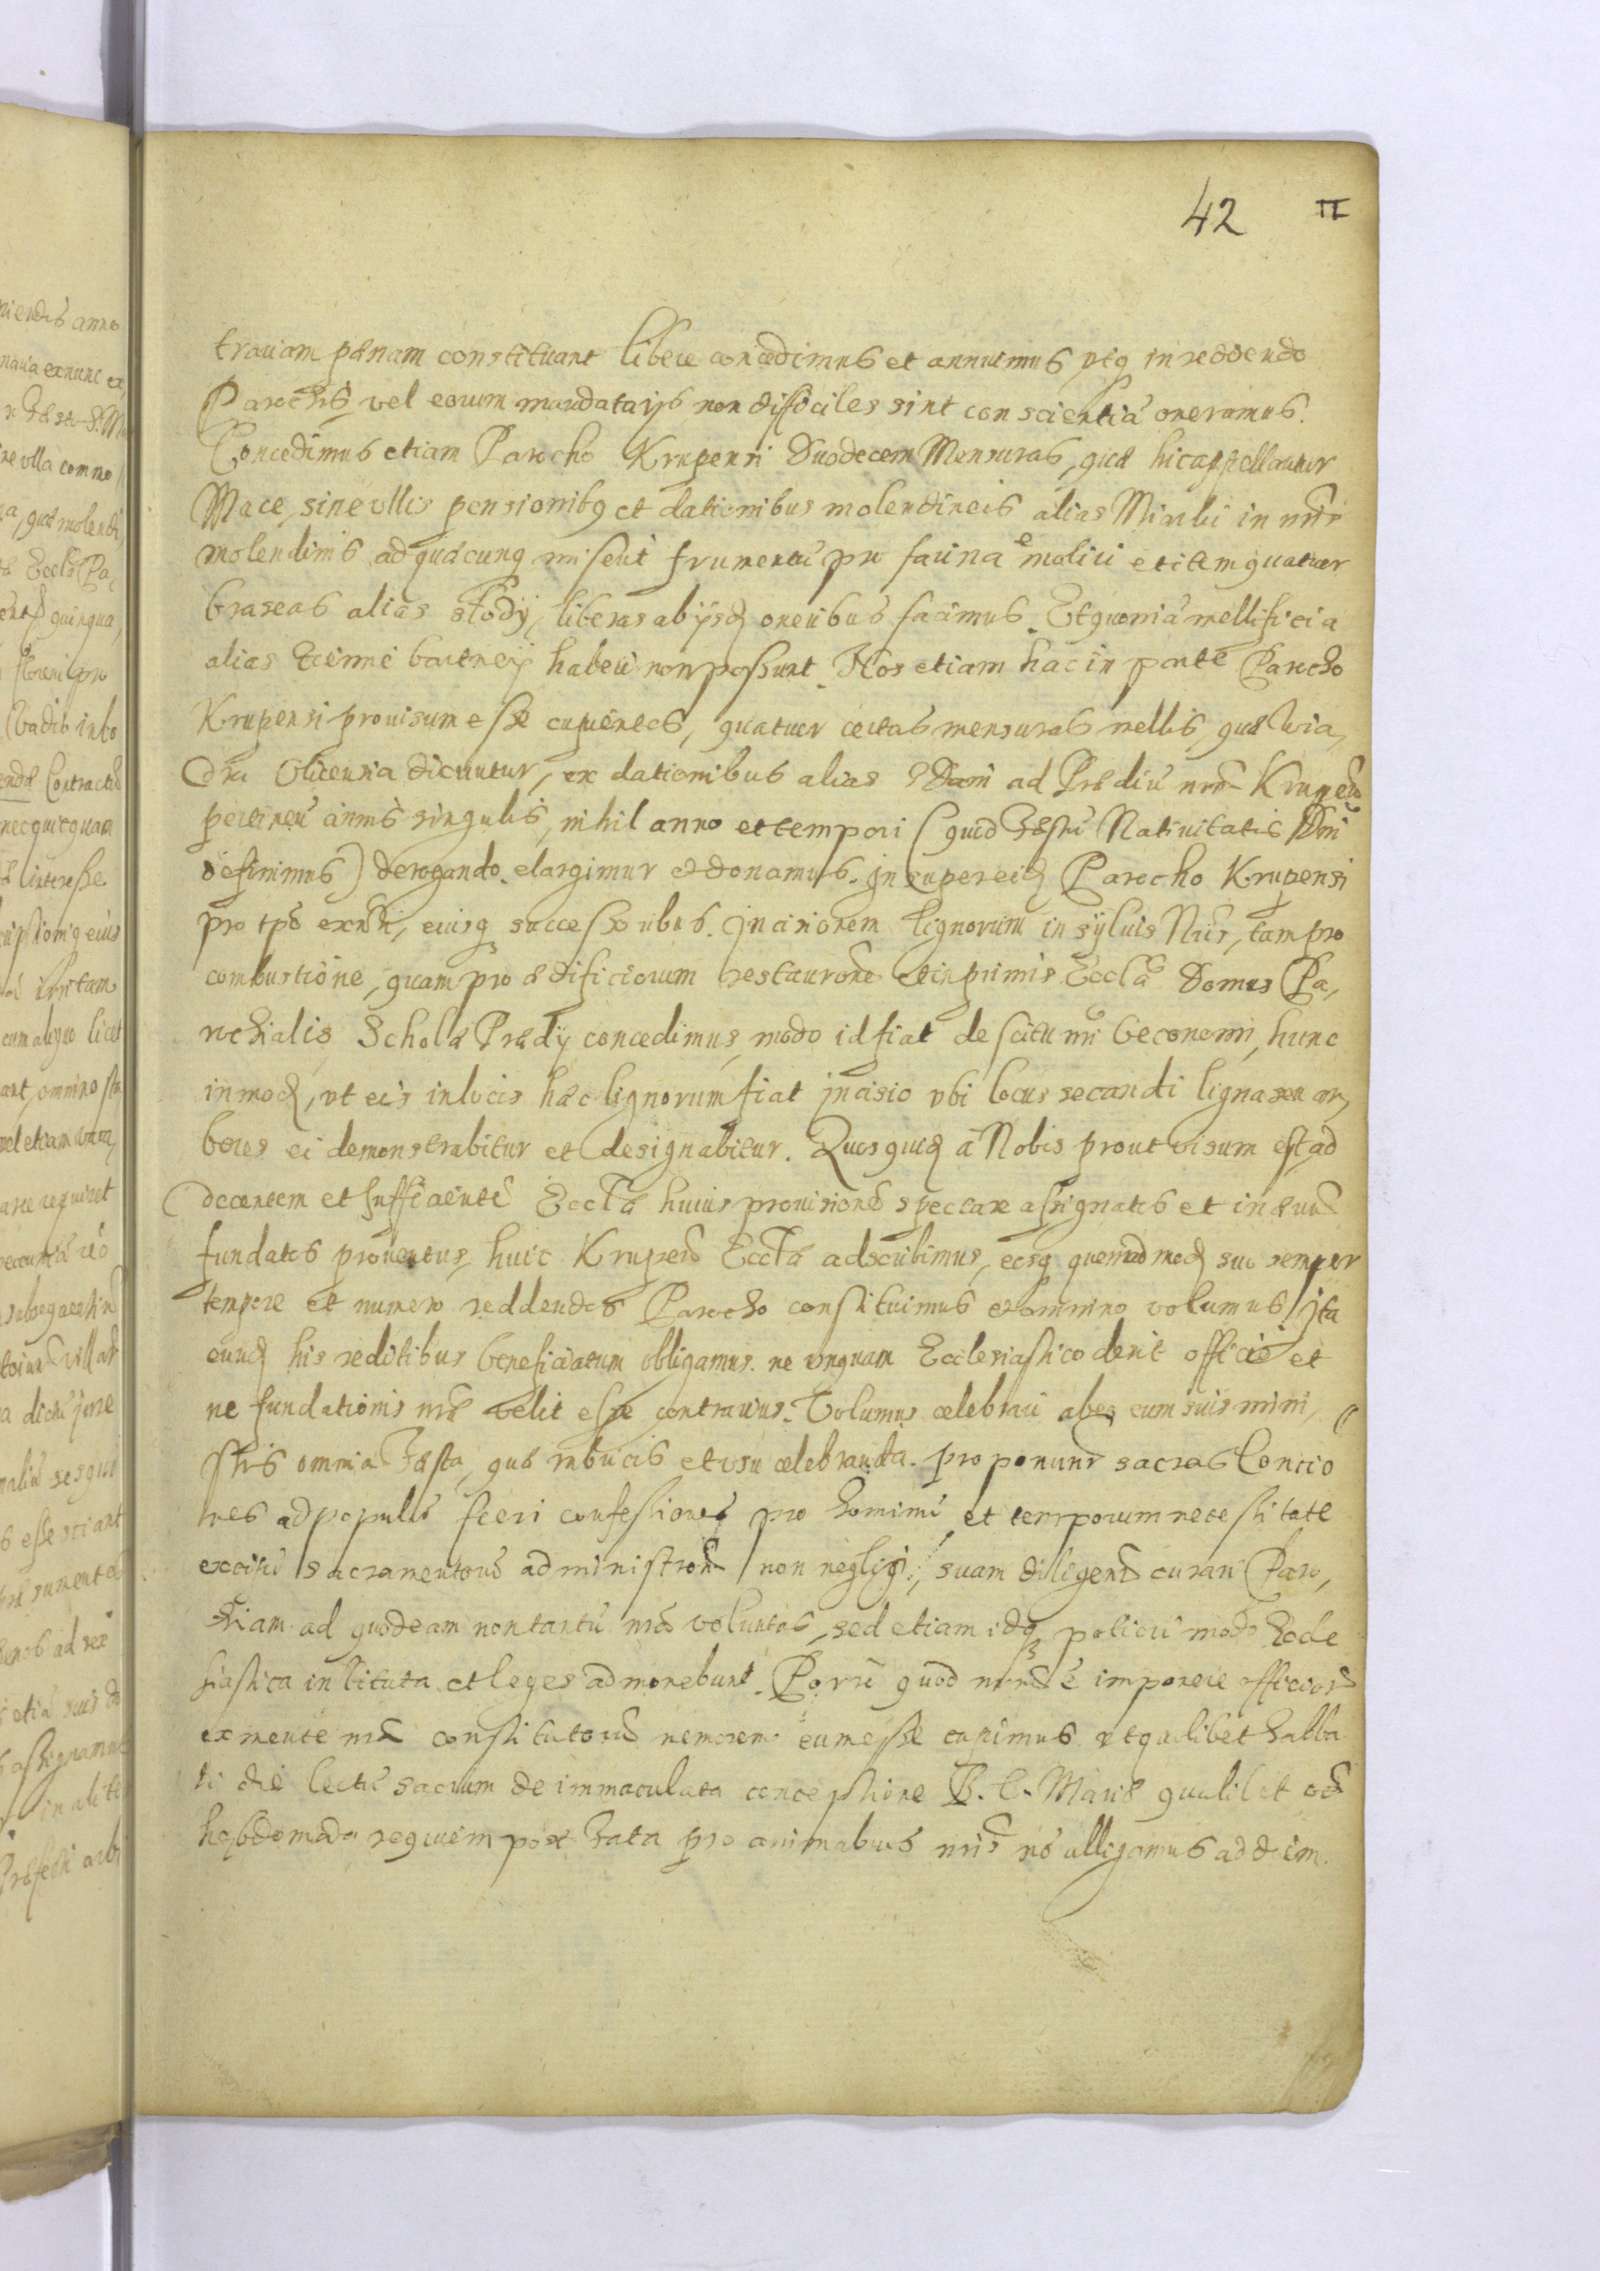 42 II
trariam pænam constituant libere concedimus et annuimus utq in reddendo
Parochis vel eorum mandatarijs non difficiles sint conscientiā oneramus.
Concedimus etiam Parocho Krupensi Duodecem Mensuras, quæ hic appellantur
Mace, sine ullis pensionibq et dationibus molendineis alias Miarki in nris
molendinis ad quæcunq miserit frumentū pro farina moliri et item quatuor
braseas alias słody, liberas ab ijsdē oneribus facimus. Et quoniā mellificia
alias haberi non possunt. Nos etiam hac in parte Parocho
Krupensi provisum esse cupientes, quatuor certas mensuras mellis, quæ Wia,
dra dicuntur, ex dationibus alias Dani ad Prædiū nrm Krupen̄
pertineñ annis singulis, nihil anno et tempori (quod Festū Nativitatis Dni
definimus) derogando elargimur et donamus. Insuper eidē Parocho Krupensi
pro tpe exñti, eiusq successoribus. Incisionem lignorum in syluis Nris, tam pro
combustione, quam pro ædificiorum restaurōne et inprimis Eccłæ Domus Pa,
rochialis Scholæ Prædij concedimus, modo id fiat de scitu nri Oeconomi, hunc
in modū, ut eis in locis hæc lignorum fiat incisio ubi locus secandi ligna seu ar,
bores ei demonstrabitur et designabitur. Quos quidē â Nobis prout visum est ad
decentem et sufficientē Eccłæ huius provisionē spectare assignatos et in ævū
fundatos proventus, huic Krupen̄ Eccłæ adscribimus, eosq quemadmodū suo semper
tempore et numero reddendos Parocho constituimus et omnino volumus. Ita
eundē his reditibus beneficiatum obligamus. ne unquam Ecclesiastico derit officio et
ne fundationis nræ velit esse contrarius. Volumus celebrari ab eo cum suis mini,
stris omnia Festa, quæ in et usu celebranda. proponunt sacras Concio
nes ad populū fieri confessiones pro hominū et temporum necessitate
sacramentorū administrōne non negligi, suam diligenē curari Paro,
chiam ad quod eam non tantū nrā voluntas, sed etiam modo Eccle
siastica instituta et leges admonebunt. Porrō quod imponere
ex mente nrā constitutorū memorem eum esse cupimus ut qualibet Sabba
ti die lectū sacrum de immaculata conceptione B. V. Mariæ qualibet
hebdomada requiem post Fata pro animabus nris alligamus ad